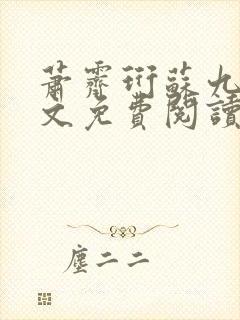 蕭霽衍蘇九
文免費閱讀
塵二二